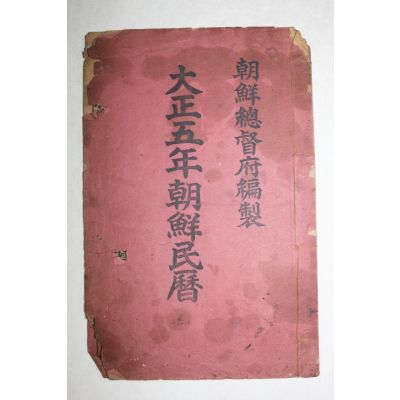 朝鮮總督府編製
大正五年朝鮮民暦